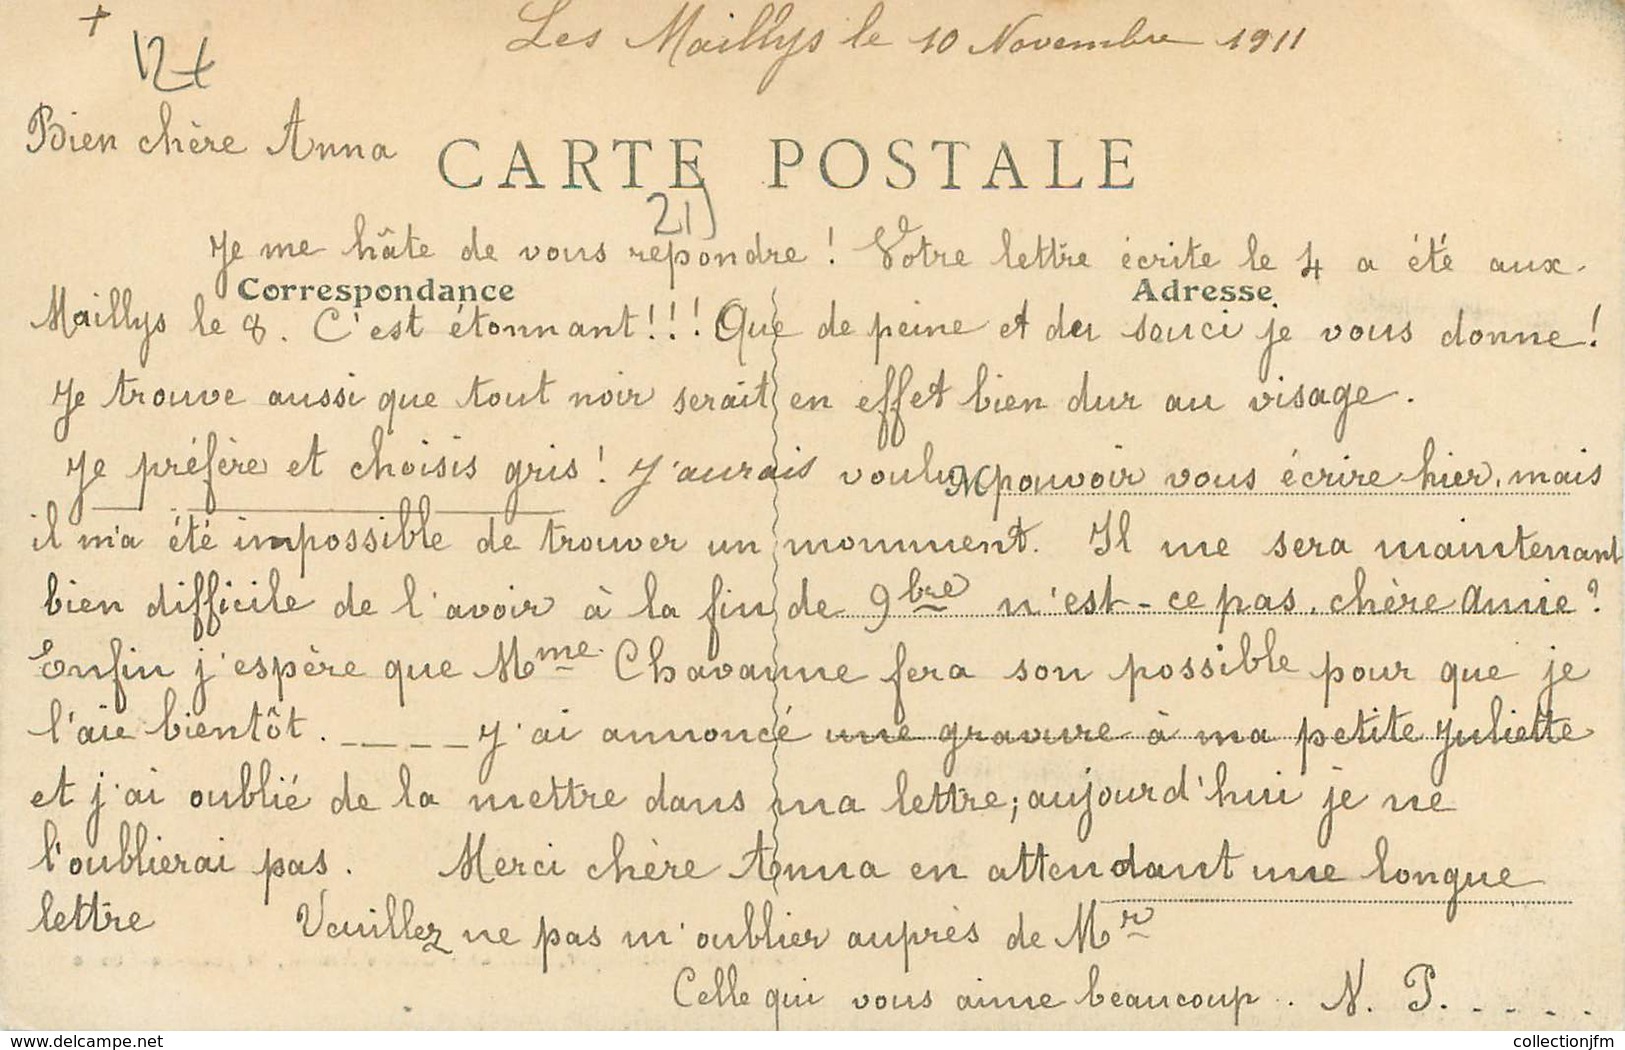 Les Maillys le 10 Novembre 1911
12t
Bien chère Anna
CARTE POSTALE
21
Je me hâte de vous repondre ! Votre lettre écrite le 4 a été aux
Correspondance
Adresse
Maillys le 8. C'est étonnant !!! Que de peine et du souci je vous donne !
Je trouve aussi que tout noir serait en effet bien dur au visage.
Je préfère et choisis gris ! J'aurais voulu pouvoir vous écrire hier, mais
M
il m'a été impossible de trouver un momment. Il me sera maintenant
bien difficile de l'avoir à la fin de 9bre n'est-ce pas, chère Amie ?
Enfin j'espère que Mme Chavanne fera son possible pour que je
l'aie bientôt. ____ J'ai annoncé une gravure à ma petite Juliette
et j'ai oublié de la mettre dans ma lettre; aujourd'hui je ne
l'oublierai pas. Merci chère Anna en attendant une longue
lettre Veuillez ne pas m'oublier auprès de Mr
Celle qui vous aime beaucoup. N. P. . . . .
www.delcampe.net
collectionjfm